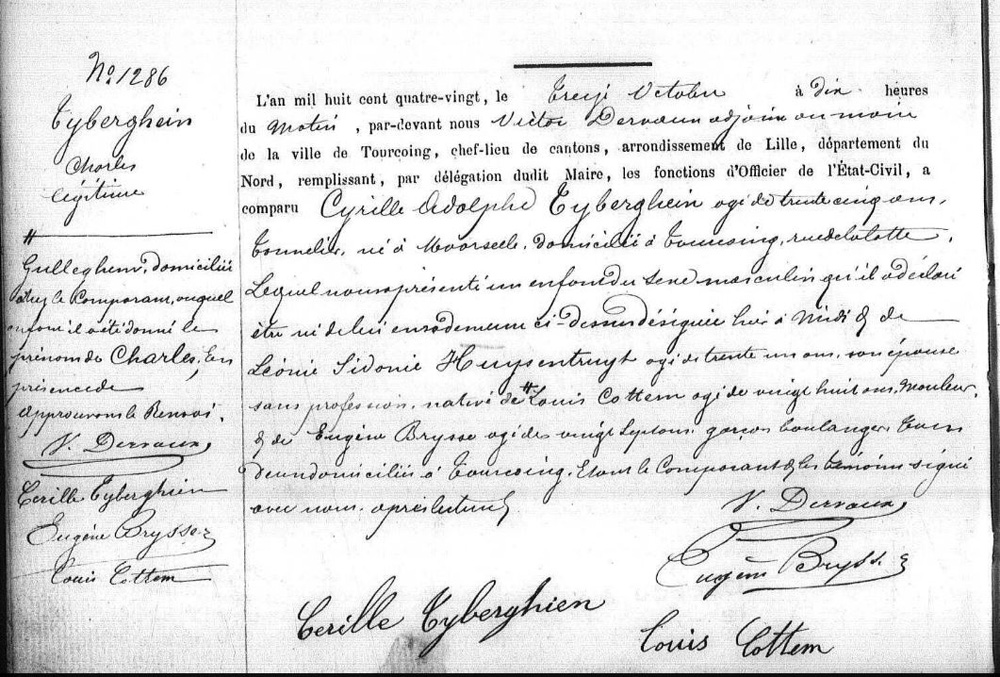 No 1286
Tyberghein
Charles
légitime
#
Gulleghem, domicilié
chez le Comparant, auquel
enfant il a été donné le
prénom de Charles, En
présence de
approuvons le Renvoi.
V. Dervaux
Cerille Tyberghien
Eugène Brysse
Louis Cottem
L'an mil huit cent quatre-vingt, le Treize Octobre à Dix heures
du Matin, par-devant nous Victor Dervaux adjoint au maire
de la ville de Tourcoing, chef-lieu de cantons, arrondissement de Lille, département du
Nord, remplissant, par délégation dudit Maire, les fonctions d'Officier de l'État-Civil, a
comparu Cyrille Adolphe Tyberghein agé de trente cinq ans,
Tonnelier, né à Moorseele, domicilié à Tourcoing, rue de la latte,
Lequel nous a présenté un enfant du sexe masculin qu'il a déclaré
être né de lui en sa demeure ci-dessus désignée hier à Midi & de
Léonie Sidonie Huysentruyt agée de trente un ans, son épouse
sans profession, native de # Louis Cottem agé de vingt huit ans, Mouleur,
& de Eugène Brysse agé de vingt sept ans, garçon boulanger, tous
deux domiciliés à Tourcoing. Et ont le Comparant & les témoins signé
avec nous après lecture
V. Dervaux
Eugène Brysse
Cerille Tyberghien
Louis Cottem